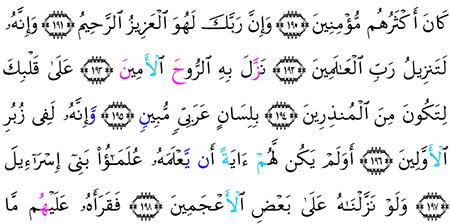 كَانَ أَكْثَرُهُم مُّؤْمِنِينَ ۝١٩٠ وَإِنَّ رَبَّكَ لَهُوَ ٱلْعَزِيزُ ٱلرَّحِيمُ ۝١٩١ وَإِنَّهُۥ
لَتَنزِيلُ رَبِّ ٱلْعَـٰلَمِينَ ۝١٩٢ نَزَّلَ بِهِ ٱلرُّوحُ ٱلْأَمِينُ ۝١٩٣ عَلَىٰ قَلْبِكَ
لِتَكُونَ مِنَ ٱلْمُنذِرِينَ ۝١٩٤ بِلِسَانٍ عَرَبِىٍّ مُّبِينٍ ۝١٩٥ وَإِنَّهُۥ لَفِى زُبُرِ
ٱلْأَوَّلِينَ ۝١٩٦ أَوَلَمْ يَكُن لَّهُمْ ءَايَةً أَن يَعْلَمَهُۥ عُلَمَـٰٓؤُا۟ بَنِىٓ إِسْرَٰٓءِيلَ
۝١٩٧ وَلَوْ نَزَّلْنَـٰهُ عَلَىٰ بَعْضِ ٱلْأَعْجَمِينَ ۝١٩٨ فَقَرَأَهُۥ عَلَيْهِم مَّا